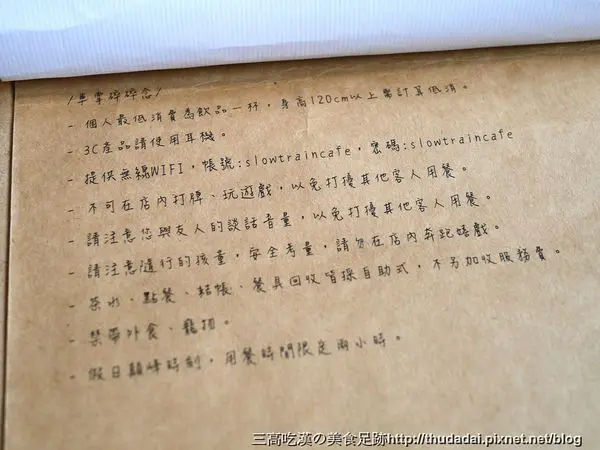 /車掌碎碎念/
- 個人最低消費為飲品一杯，身高120cm以上需訂算低消。
- 3C產品請使用耳機。
- 提供無線WIFI，帳號:slowtraincafe，密碼:slowtraincafe
- 不可在店內打牌、玩遊戲，以免打擾其他客人用餐。
- 請注意您與友人的談話音量，以免打擾其他客人用餐。
- 請注意隨行的孩童，安全考量，請勿在店內奔跑嬉戲。
- 茶水、點餐、結帳、餐具回收皆採自助式，不另加收服務費。
- 禁帶外食、寵物。
- 假日顛峰時刻，用餐時間限定兩小時。
三高吃漢の美食足跡http://thudadai.pixnet.net/blog